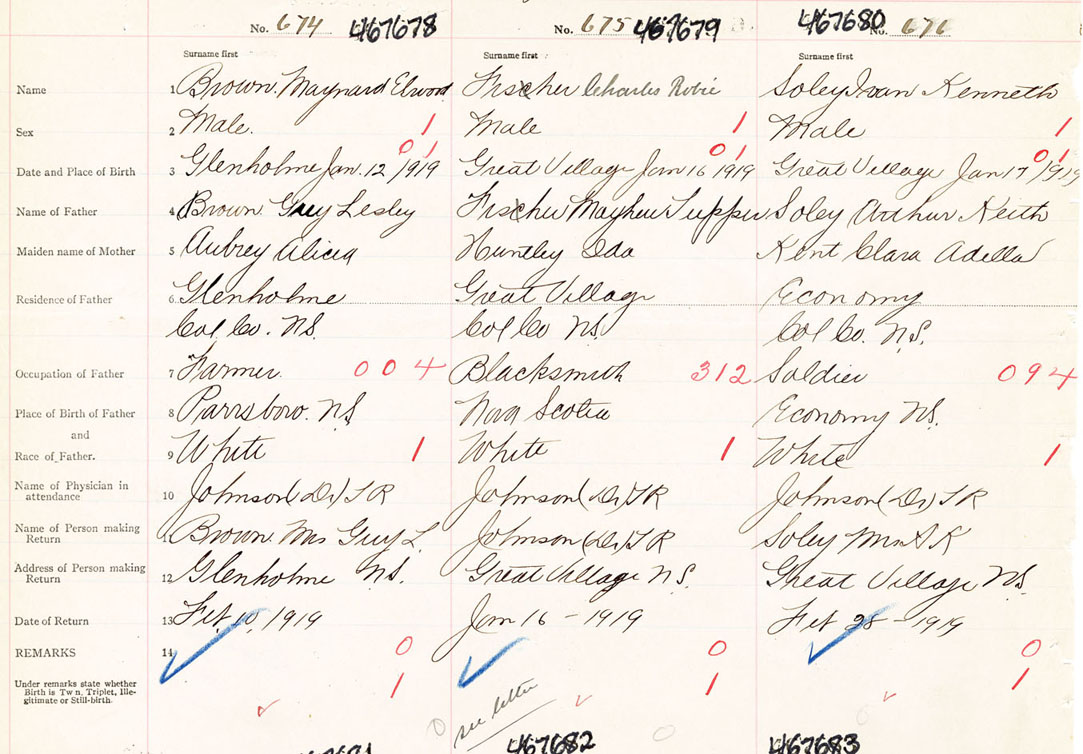 No. 674 467678 No. 675 467679 467680 No. 676
Surname first Surname first Surname first
Name 1 Brown. Maynard Elwood Fischer Charles Robie Soley Ivan Kenneth
Sex 2 Male. 1 Male 1 Male 1
01 01 01
Date and Place of Birth 3 Glenholme Jan. 12/1919 Great Village Jan 16 1919 Great Village Jan 17/1919
Name of Father 4 Brown Guy Lesley Fischer Mayhew Tupper Soley Arthur Keith
Maiden name of Mother 5 Aubrey Alicia Huntley Ida Kent Clara Adella
Residence of Father 6 Glenholme Great Village Economy
Col Co. N.S. Col Co N.S. Col Co. N.S.
Occupation of Father 7 Farmer. 004 Blacksmith 312 Soldier 094
Place of Birth of Father 8 Parrsboro. N.S Nova Scotia Economy N.S.
and
Race of Father. 9 White 1 White 1 White 1
Name of Physician in
attendance 10 Johnson (Dr) T R Johnson (Dr) T R Johnson (Dr) T R
Name of Person making
Return 11 Brown. Mrs Guy L. Johnson (Dr) T R Soley Mrs A K
Address of Person making
Return 12 Glenholme N.S. Great Village N.S. Great Village N.S.
Date of Return 13 Feb. 10, 1919 Jan 16 - 1919 Feb 28 - 1919
REMARKS 14 0 0 0
Under remarks state whether
Birth is Twin, Triplet, Ille-
gitimate or Still-birth. 1 1 1
0 see letter 0
467682 467683